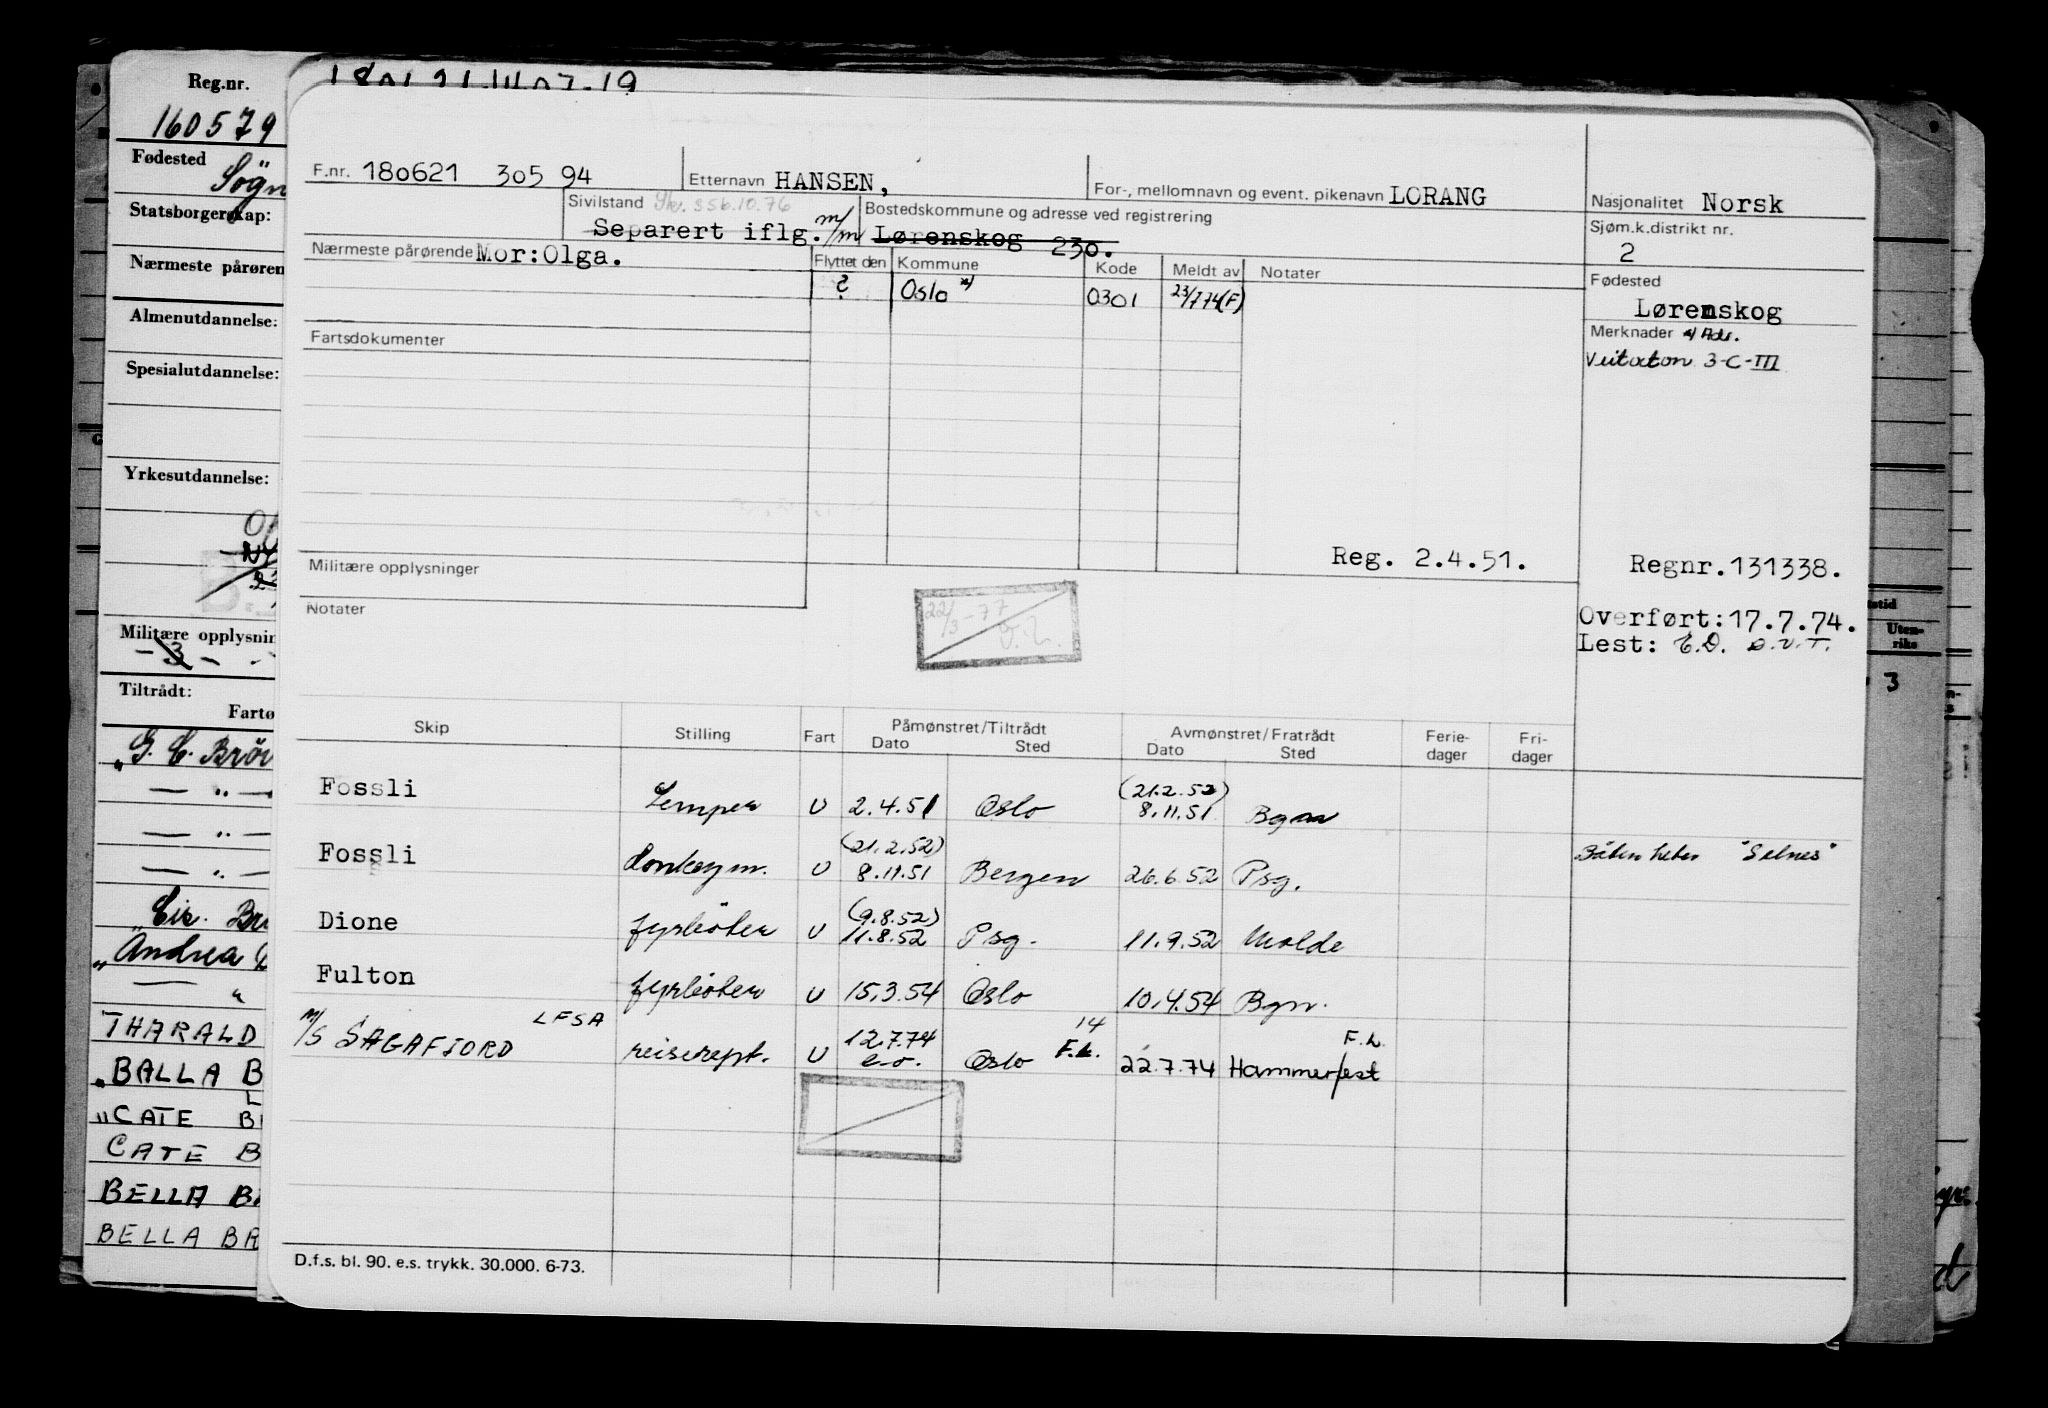 Reg.nr.
160579
Fødested
Søgn
Statsborgerskap:
Nærmeste pårøren
Almenutdannelse:
Spesialutdannelse:
Yrkesutdannelse:
Militære opplysnin
- 3 -
Tiltrådt:
Fartø
"G. C. Brøv
— " —
— " —
— " —
"Eik. Br
"Andrea
— "
THARALD
"BALLA B
"CATE B
CATE B
BELLA B
BELLA BR
F.nr. 180621 305 94
Etternavn HANSEN,
For-, mellomnavn og event. pikenavn LORANG
Nasjonalitet Norsk
Sivilstand Skr. s56.10.76
Separert iflg. m/m
Bostedskommune og adresse ved registrering
Lørenskog 230.
Sjøm.k.distrikt nr.
2
Nærmeste pårørende Mor:Olga.
Flyttet den Kommune Kode Meldt av Notater
? Oslo *) 0301 23/7 74(F)
Fødested
Lørenskog
Merknader */ Adr.
3-C-III
Fartsdokumenter
Reg. 2.4.51.
Regnr.131338.
Militære opplysninger
Notater
22/3-77
Overført:17.7.74.
Lest:
Uten-
riks
3
Skip Stilling Fart Påmønstret/Tiltrådt Avmønstret/Fratrådt Ferie- Fri-
Dato Sted Dato Sted dager dager
Fossli Lemper U 2.4.51 Oslo (21.2.52) 8.11.51 Bgn
Fossli donkeym. U (21.2.52) 8.11.51 Bergen 26.6.52 Psg. "Selnes"
Dione fyrbøter U (9.8.52) 11.8.52 Psg. 11.9.52 Molde
Fulton fyrbøter U 15.3.54 Oslo 10.4.54 Bgn.
m/s SAGAFJORD LFSA reiserept. U 12.7.74 e.o. Oslo 14 F.h. 22.7.74 Hammerfest F.h.
D.f.s. bl. 90. e.s. trykk. 30.000. 6-73.